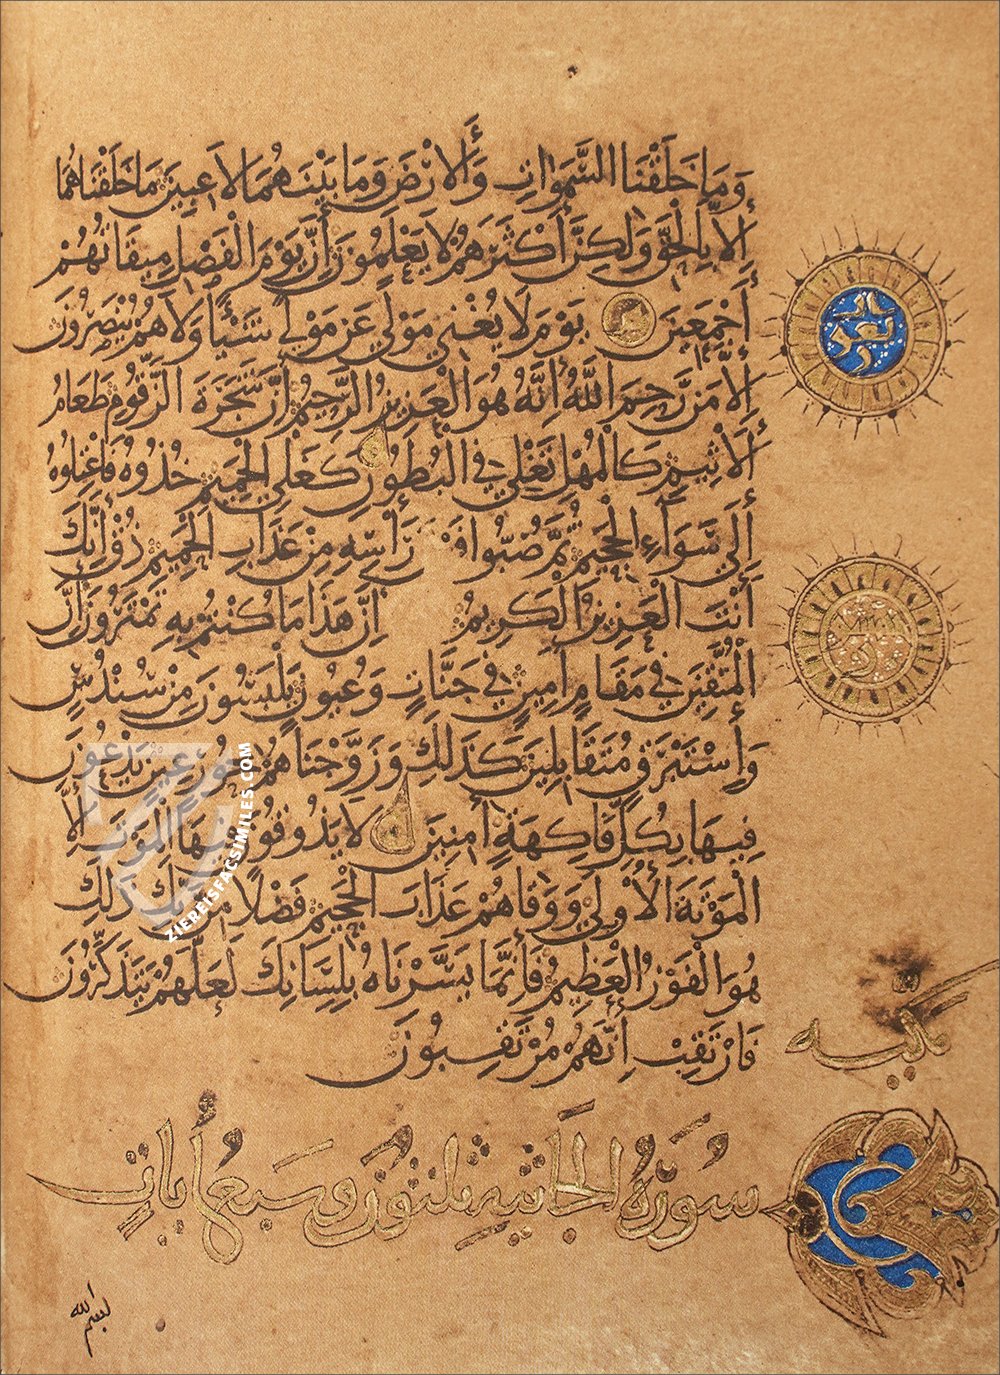 وَمَا خَلَقْنَا السَّمَوَاتِ وَالْأَرْضَ وَمَا بَيْنَهُمَا لَاعِبِينَ مَا خَلَقْنَاهُمَا
إِلَّا بِالْحَقِّ وَلَكِنَّ أَكْثَرَهُمْ لَا يَعْلَمُونَ إِنَّ يَوْمَ الْفَصْلِ مِيقَاتُهُمْ
أَجْمَعِينَ يَوْمَ لَا يُغْنِي مَوْلًى عَنْ مَوْلًى شَيْئًا وَلَا هُمْ يُنْصَرُونَ
إِلَّا مَنْ رَحِمَ اللَّهُ إِنَّهُ هُوَ الْعَزِيزُ الرَّحِيمُ إِنَّ شَجَرَةَ الزَّقُّومِ طَعَامُ
الْأَثِيمِ كَالْمُهْلِ تَغْلِي فِي الْبُطُونِ كَغَلْيِ الْحَمِيمِ خُذُوهُ فَاعْتِلُوهُ
إِلَى سَوَاءِ الْجَحِيمِ ثُمَّ صُبُّوا رَأْسِهِ مِنْ عَذَابِ الْحَمِيمِ ذُقْ إِنَّكَ
أَنْتَ الْعَزِيزُ الْكَرِيمُ إِنَّ هَذَا مَا كُنْتُمْ بِهِ تَمْتَرُونَ إِنَّ
الْمُتَّقِينَ فِي مَقَامٍ أَمِينٍ فِي جَنَّاتٍ وَعُيُونٍ يَلْبَسُونَ مِنْ سُنْدُسٍ
وَإِسْتَبْرَقٍ مُتَقَابِلِينَ كَذَلِكَ وَزَوَّجْنَاهُمْ بِحُورٍ عِينٍ يَدْعُونَ
فِيهَا بِكُلِّ فَاكِهَةٍ آمِنِينَ لَا يَذُوقُونَ فِيهَا الْمَوْتَ إِلَّا
الْمَوْتَةَ الْأُولَى وَوَقَاهُمْ عَذَابَ الْجَحِيمِ فَضْلًا مِنْ رَبِّكَ ذَلِكَ
هُوَ الْفَوْزُ الْعَظِيمُ فَإِنَّمَا يَسَّرْنَاهُ بِلِسَانِكَ لَعَلَّهُمْ يَتَذَكَّرُونَ
فَارْتَقِبْ إِنَّهُمْ مُرْتَقِبُونَ
مكية
سُورَةُ الْجَاثِيَةِ ثلثون وَسَبْعُ آيَاتٍ
بسم الله
ZIEREISFACSIMILES.COM